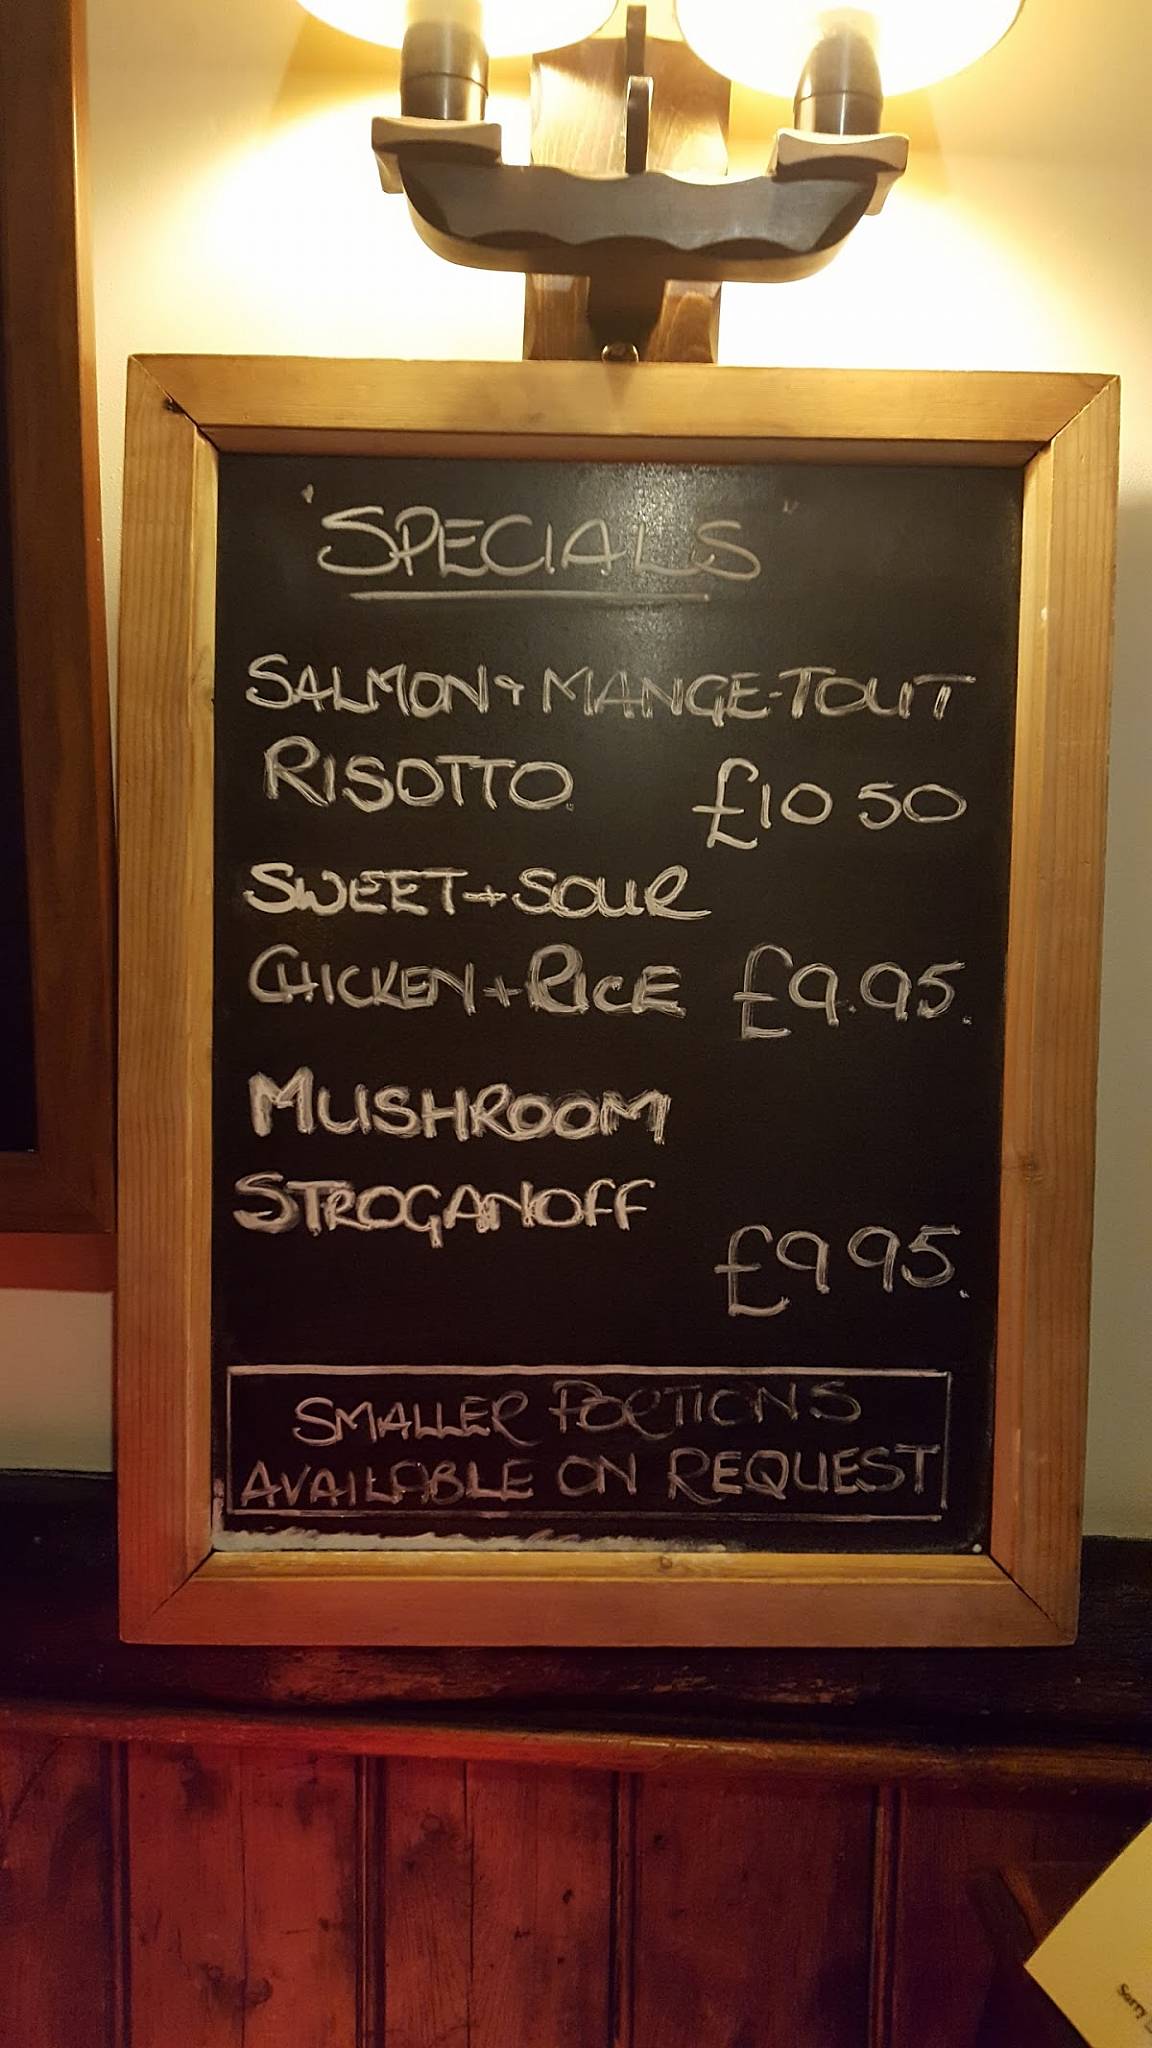 "SPECIALS"
SALMON & MANGE-TOUT
RISOTTO. £10 50
SWEET + SOUR
CHICKEN + RICE £9.95.
MUSHROOM
STROGANOFF
£9 95.
SMALLER PORTIONS
AVAILABLE ON REQUEST
Sorry